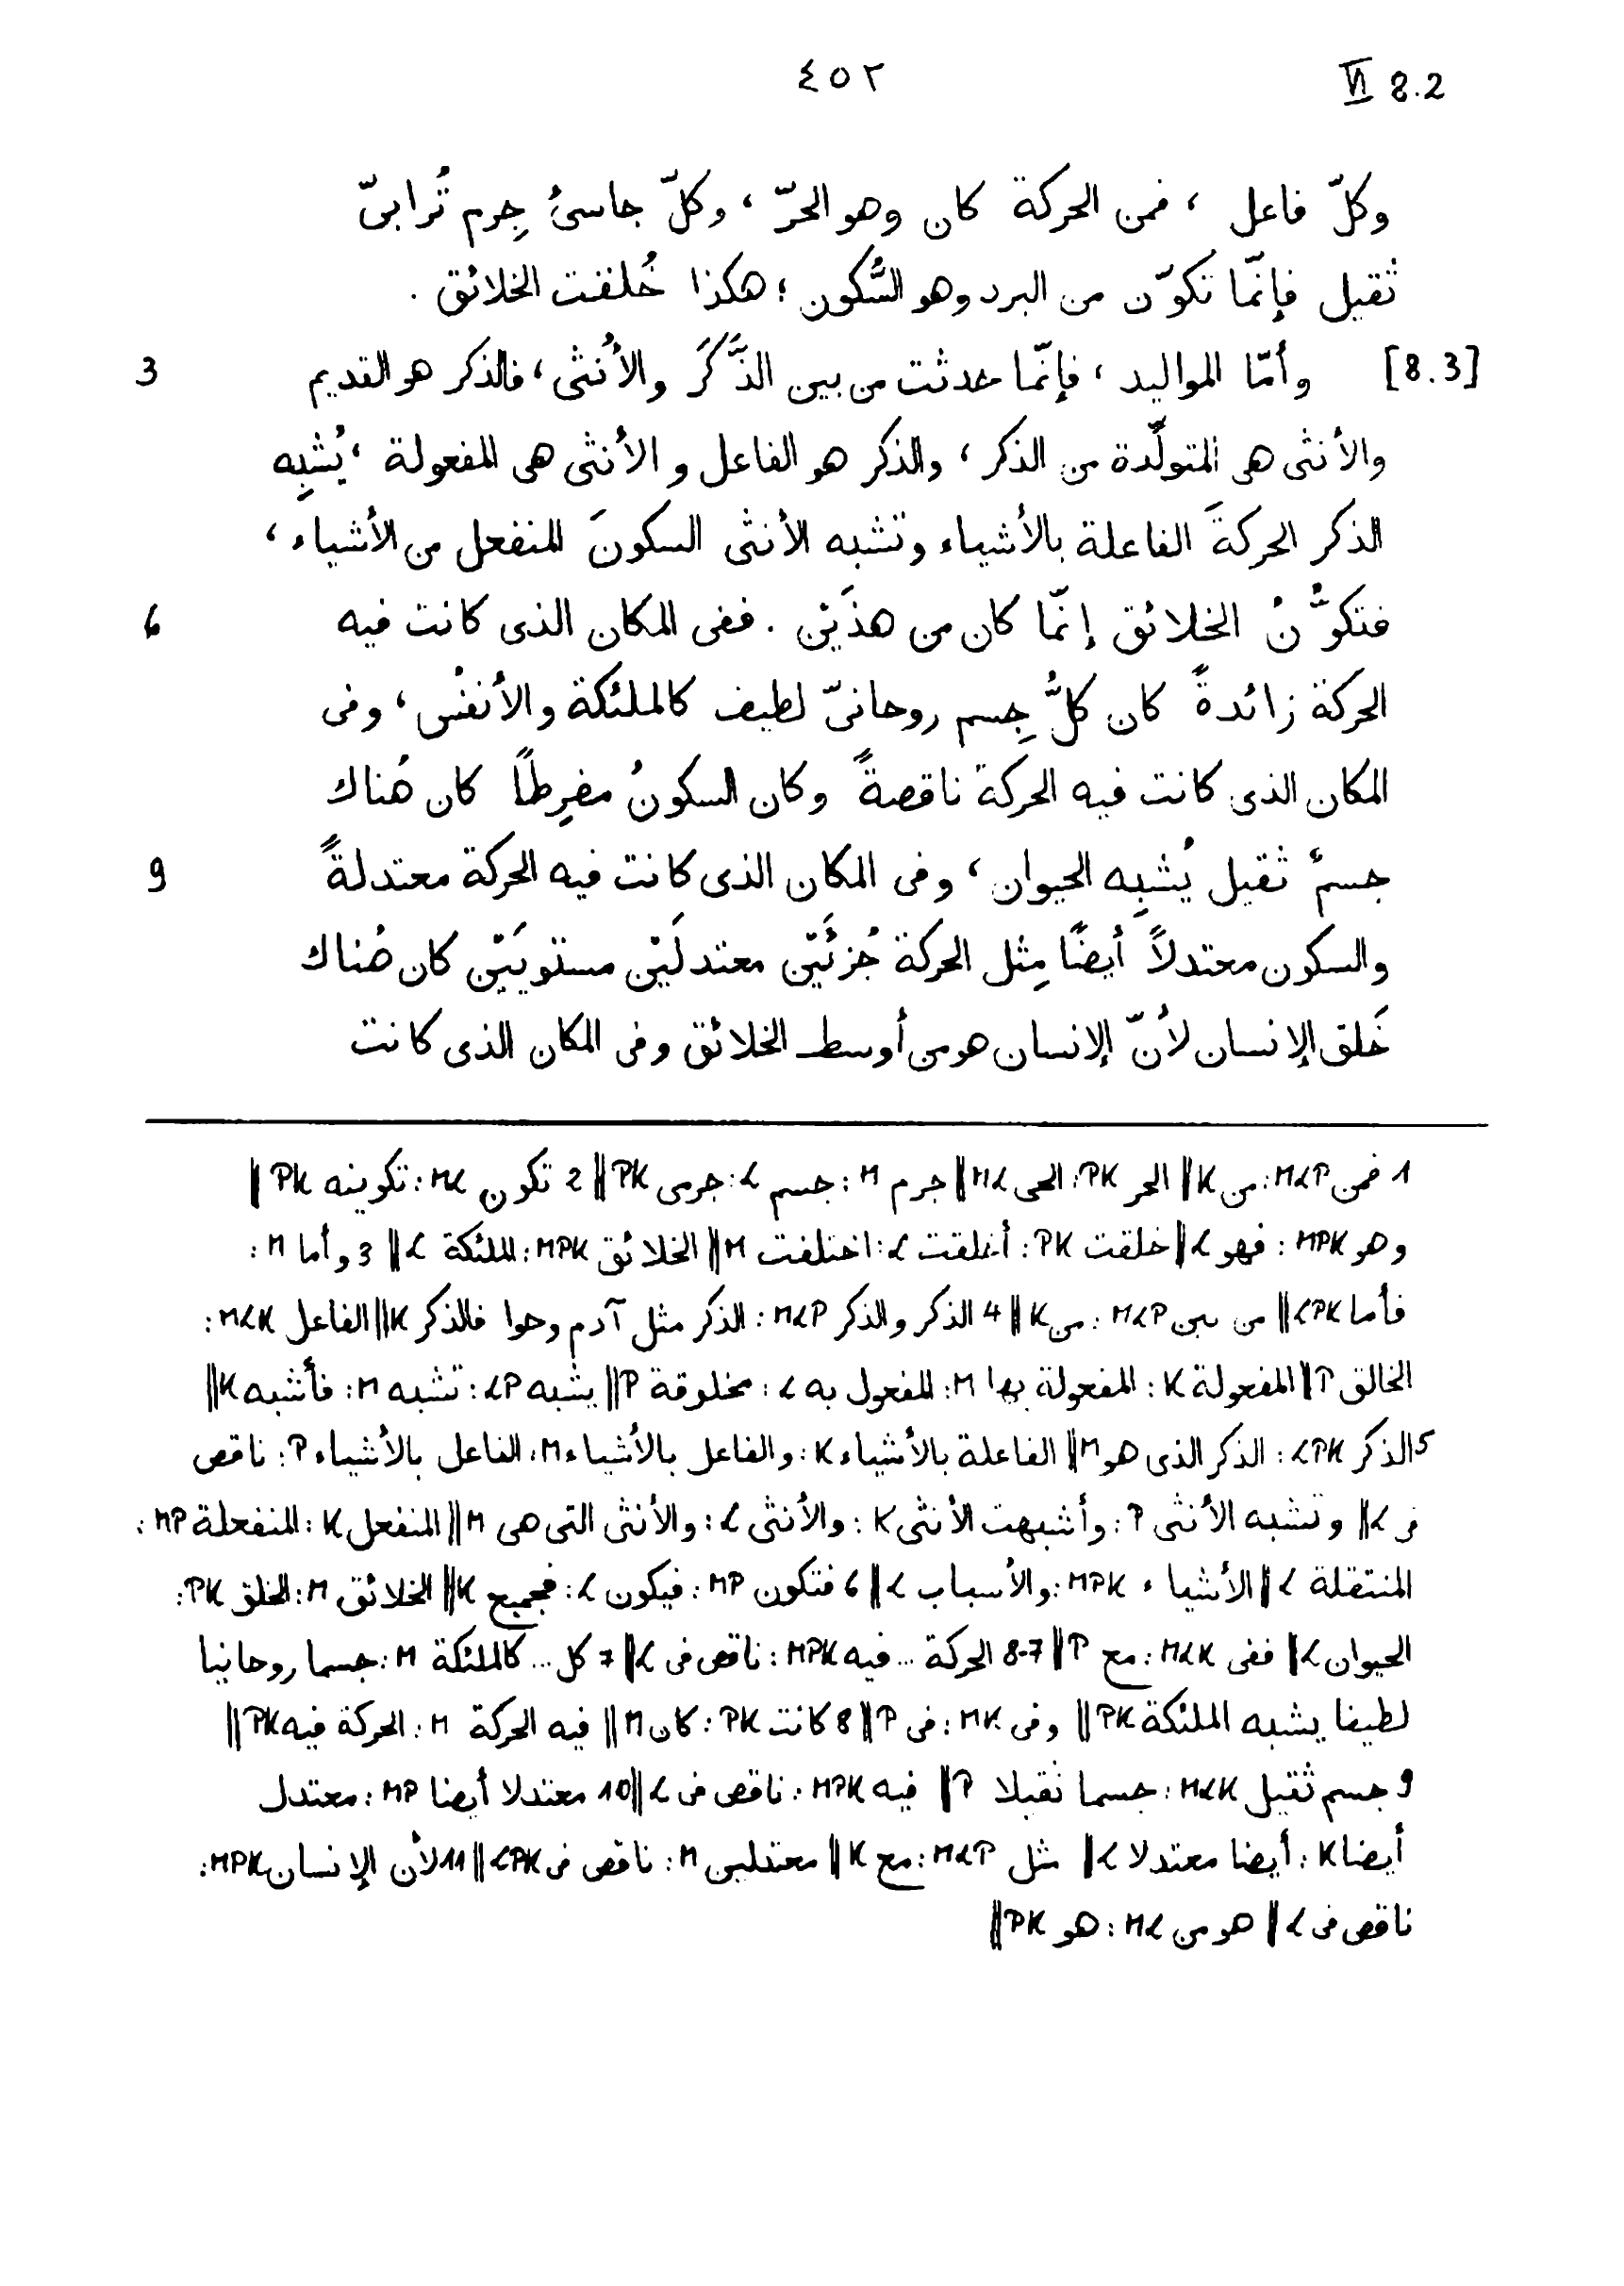 ٤٥٢ VI 8.2
وكلّ فاعل ، فمن الحركة كان وهو الحرّ ، وكلّ جاسئ جِرم تُرابىّ
ثقيل فإنّما تكوّن من البرد وهو السُّكون ؛ هكذا خُلقت الخلائق .
[8.3] وأمّا المواليد ، فإنّما حدثت من بين الذَّكَر والأُنثى ، فالذكر هو القديم 3
والأنثى هى المتولّدة من الذكر ، والذكر هو الفاعل والأنثى هى المفعولة ، يُشبِه
الذكر الحركةَ الفاعلة بالأشياء وتشبه الأنثى السكونَ المنفعل من الأشياء ،
فتكوُّنُ الخلائق إنّما كان من هذَيْن . ففى المكان الذى كانت فيه 6
الحركة زائدةً كان كلُّ جِسم روحانىّ لطيف كالملئكة والأنفُس ، وفى
المكان الذى كانت فيه الحركة ناقصةً وكان السكونُ مفرِطًا كان هُناك
جسمٌ ثقيل يُشبِه الحيوان ، وفى المكان الذى كانت فيه الحركة معتدلةً 9
والسكون معتدلاً أيضًا مِثل الحركة جُزئَيْن معتدلَيْن مستويَيْن كان هُناك
خَلق الإنسان لأنّ الإنسان هو من أوسط الخلائق وفى المكان الذى كانت
1 فمن MLP: من K || الحر PK: الحى ML || جرم M: جسم L: جرمى PK || 2 تكون ML: تكوينه PK ||
وهو MPK: فهو L || خلقت PK: أخلقت L: اختلفت M || الخلائق MPK: الملئكة L || 3 وأما M:
فأما LPK || من بين MLP: من K || 4 الذكر والذكر MLP: الذكر مثل آدم وحوا فالذكر K || الفاعل MLK:
الخالق P || المفعولة K: المفعولة بها M: المفعول به L: مخلوقة P || يشبه LP: تشبه M: فأشبه K ||
5 الذكر LPK: الذكر الذى هو M || الفاعلة بالأشياء K: والفاعل بالأشياء M: الفاعل بالأشياء P: ناقص
فى L || وتشبه الأنثى P: وأشبهت الأنثى K: والأنثى L: والأنثى التى هى M || المنفعل K: المنفعلة MP:
المنتقلة L || الأشياء MPK: والأسباب L || 6 فتكون MP: فيكون L: فجميع K || الخلائق M: الخلق PK:
الحيوان L || ففى MLK: مع P || 8-7 الحركة ... فيه MPK: ناقص فى L || 7 كل ... كالملئكة M: جسما روحانيا
لطيفا يشبه الملئكة PK || وفى MK: فى P || 8 كانت PK: كان M || فيه الحركة M: الحركة فيه PK ||
9 جسم ثقيل MLK: جسما ثقيلا P || فيه MPK: ناقص فى L || 10 معتدلا أيضا MP: معتدل
أيضا K: أيضا معتدلا L || مثل MLP: مع K || معتدلين M: ناقص فى LPK || 11 لأن الإنسان MPK:
ناقص فى L || هو من ML: هو PK ||